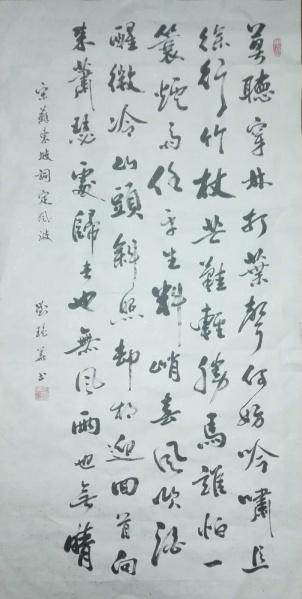 莫聽穿林打葉聲何妨吟嘯且
徐行竹杖芒鞋輕勝馬誰怕一
簑煙雨任平生料峭春風吹酒
醒微冷山頭斜照却相迎回首向
來蕭瑟處歸去也無風雨也無晴
宋蘇東坡詞定風波
書